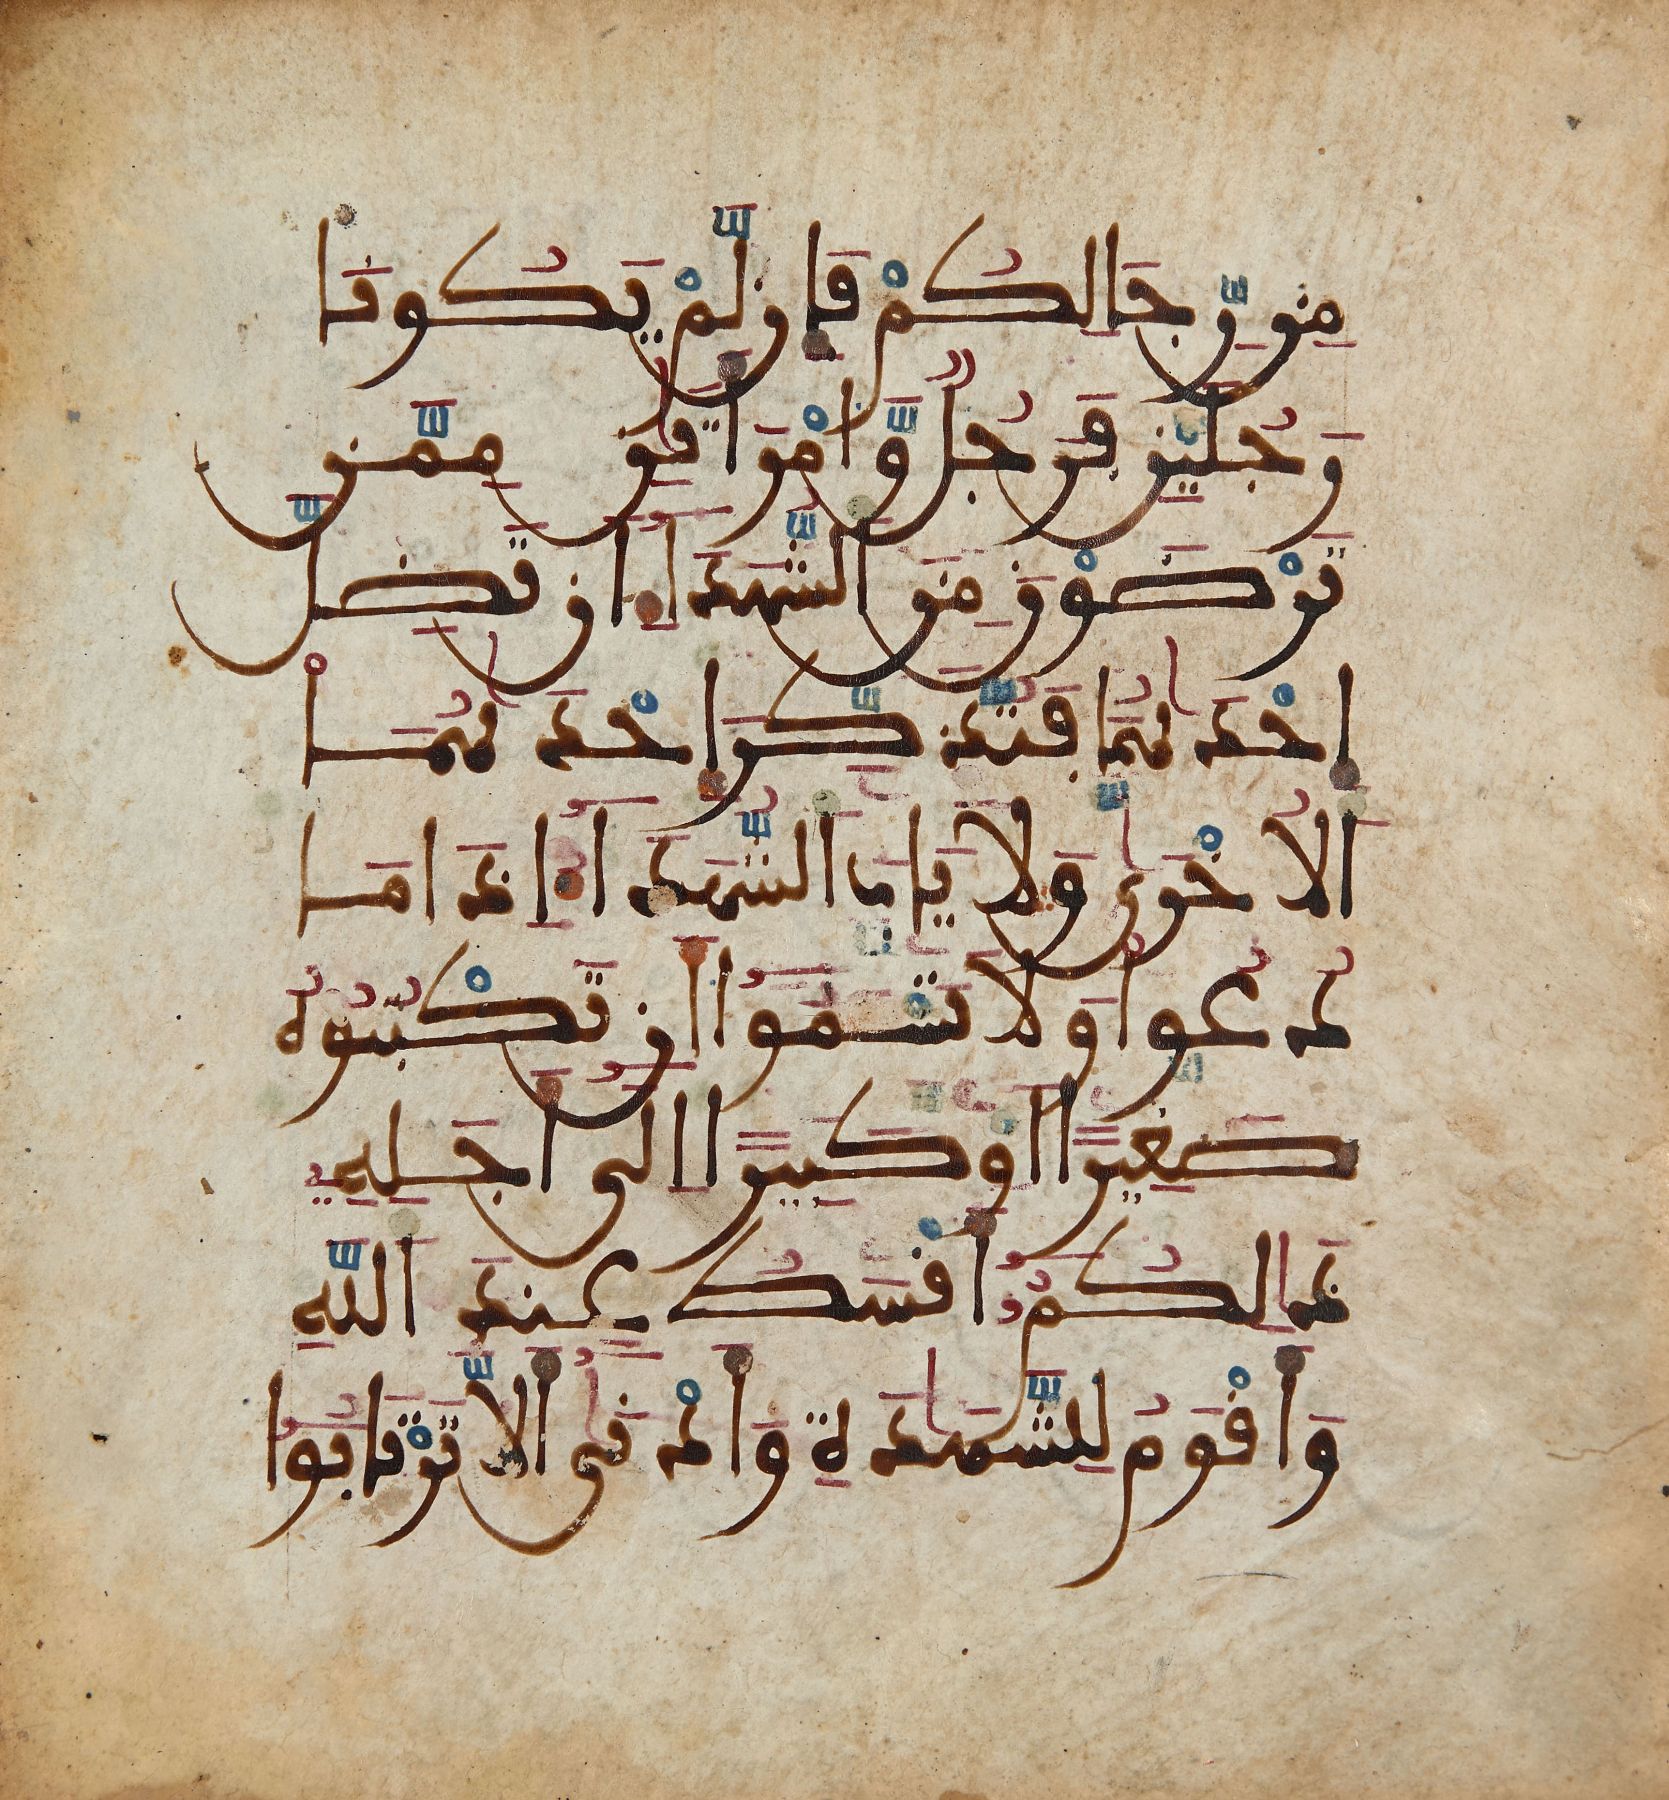 مِن رِّجَالِكُمْ فَإِن لَّمْ يَكُونَا
رَجُلَيْنِ فَرَجُلٌ وَّامْرَأَتَٰنِ مِمَّن
تَرْضَوْنَ مِنَ الشُّهَدَآءِ ان تَضِلَّ
إِحْدَىٰهُمَا فَتُذَكِّرَ إِحْدَىٰهُمَا
الُاخْرَىٰ وَلَا يَابَ الشُّهَدَآءُ إِذَا مَا
دُعُوا وَلَا تَسْـَٔمُوٓا أَن تَكْتُبُوهُ
صَغِيرًا اوْ كَبِيرًا الَىٰٓ أَجَلِهِۦ
ذَٰلِكُمُۥٓ أَقْسَطُ عِندَ اللَّهِ
وَأَقْوَمُ لِلشَّهَٰدَةِ وَأَدْنَىٰٓ أَلَّا تَرْتَابُوا